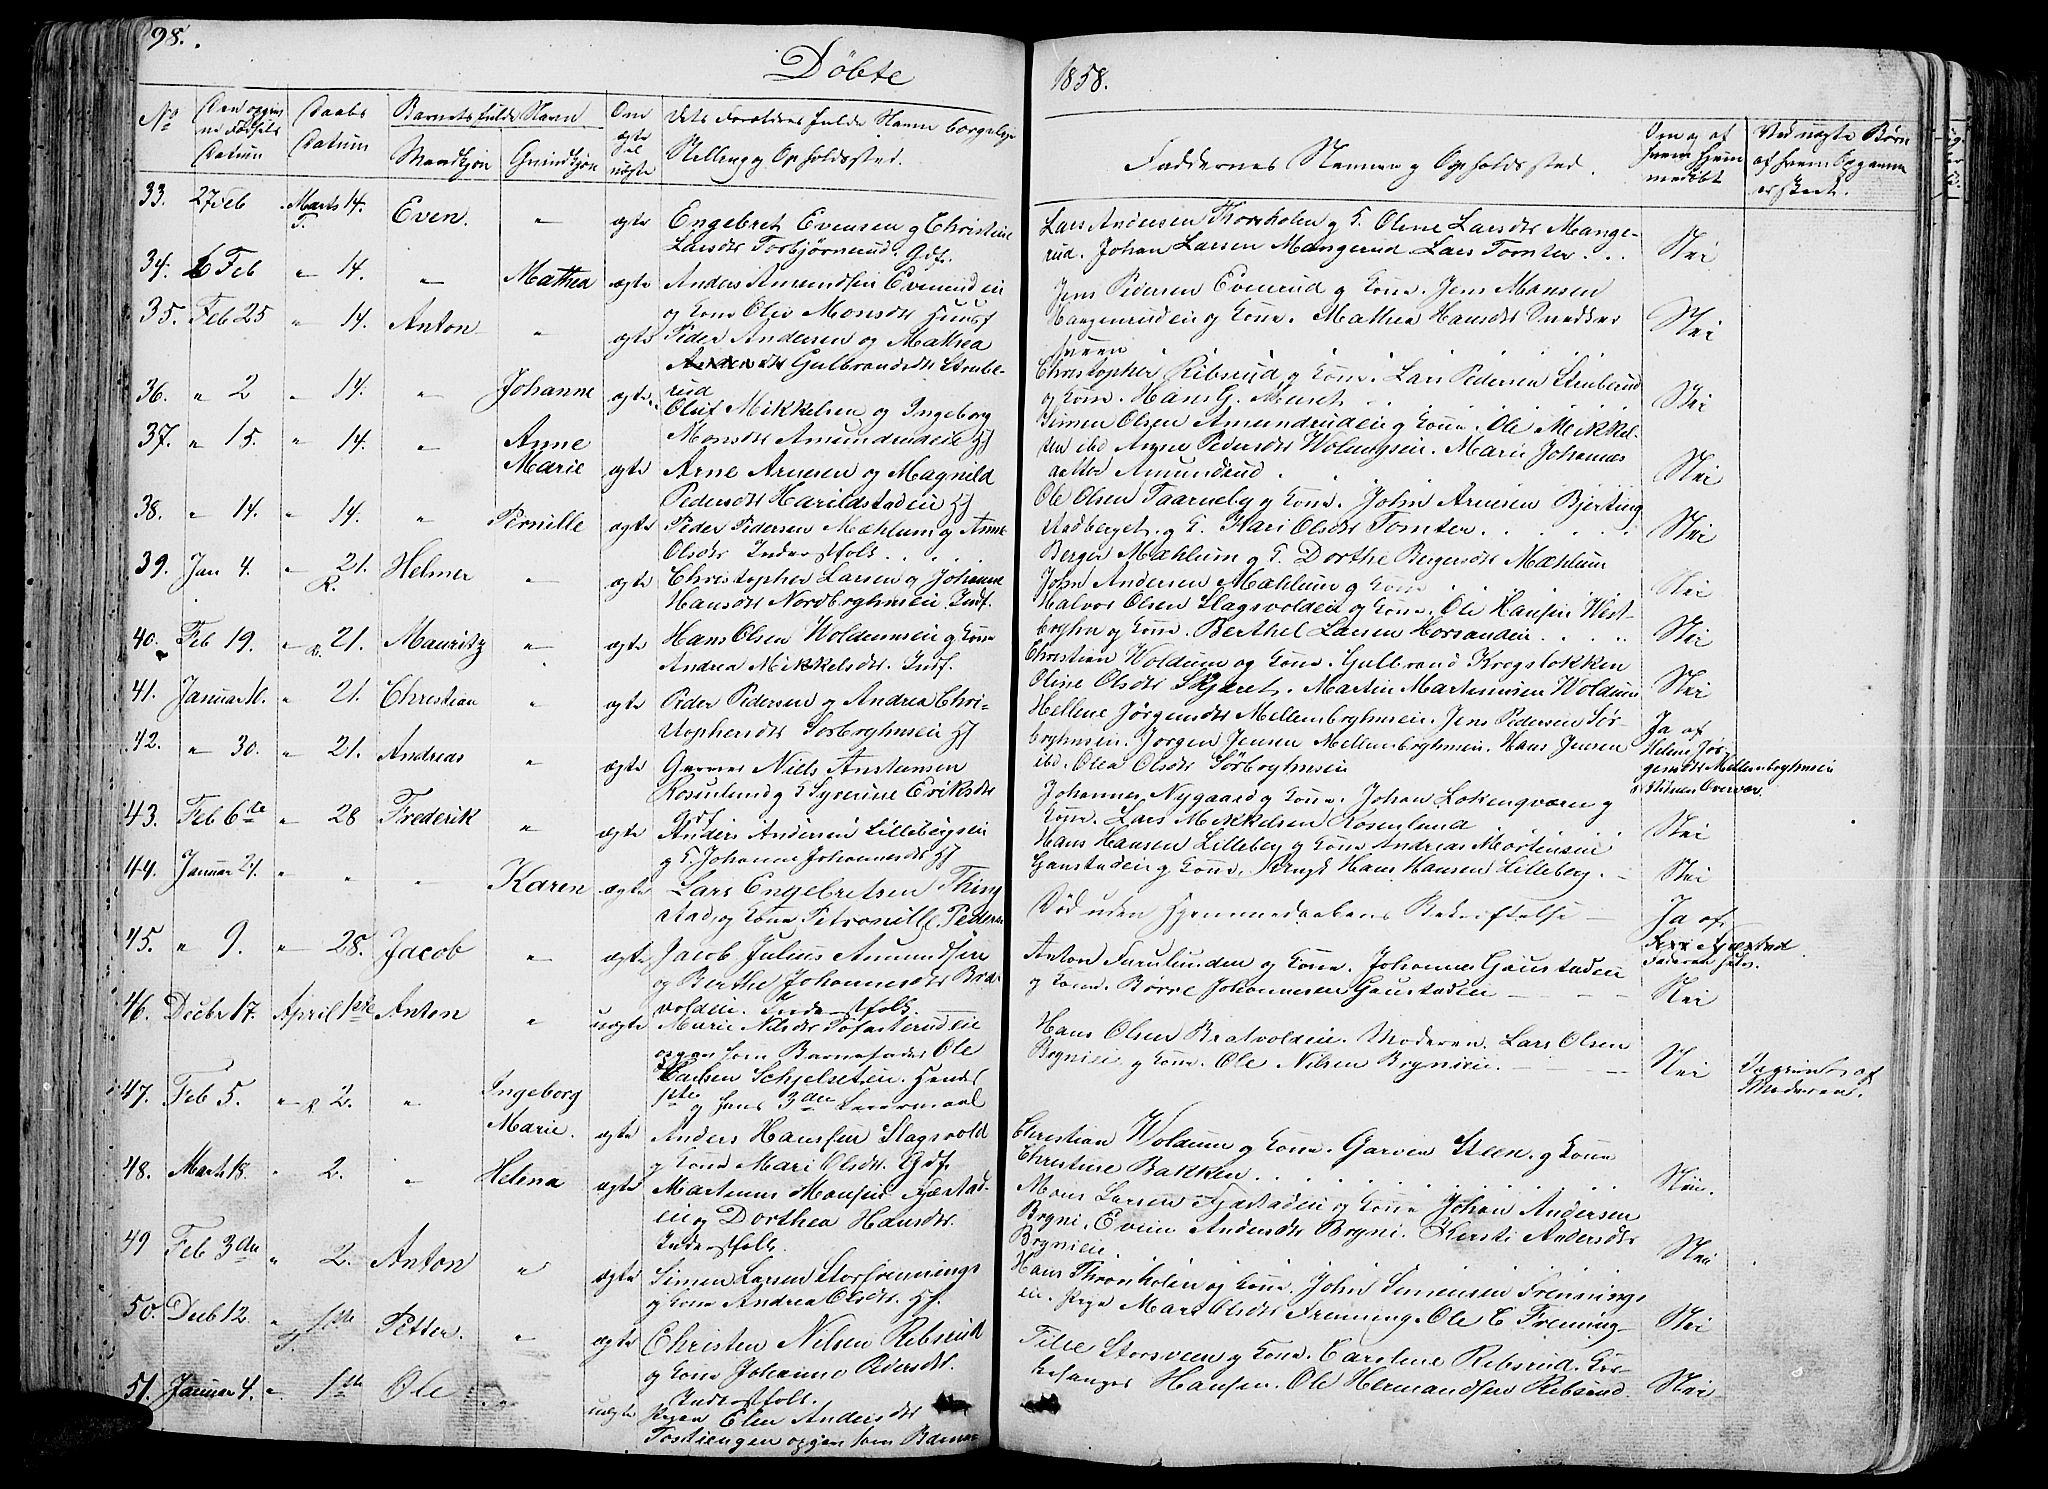 98.
Döbte
1858.
No
Datum
Daabs Datum
Barnets fulde Navn
Mandkjøn
Qvindkjøn
Om ægte el uægte
Stilling og Opholdssted.
Faddernes Navne og Opholdssted.
Om og af hvem hjemmedøbt
Ved uægte Børn
33. 27 Feb Marts 14. Even. " ægte Engebret Evensen og Christine
Larsdtr Torbjørnsrud. Gdf.
Lars Andersen Thorsholen og K. Olene Larsdtr Mange-
rud. Johan Larsen Mangerud Lars Tomter. Nei
34. 6 Feb " 14. " Mathea ægte Anders Amundsen Evenrudeie
og Kone Olea Monsdtr Huusf
Jens Pedersen Evenrud og Kone. Jens Monsen
Haugenrudeie og Kone. Mathea Hansdtr Snedker
sveen Nei
35. Feb 25 " 14. Anton " ægte Peder Andersen og Mathea
Gulbrandsdtr Strube-
rud
Christopher Ribsrud og Kone. Lars Pedersen Struberud
og Kone. Hans G. Nei
36. " 2 " 14. " Johanne ægte. Oluf Mikkelsen og Ingeborg
Monsdtr Amundrudeie Hf
Simen Olsen Amundrudeie og Kone. Ole Mikkel-
sen ibd Anne Pedersdtr Woldmoeie. Marie Johannes
datter Amundrud. Nei
37. " 15. " 14. " Anne Marie ægte Arne Arnesen og Magnild
Pedersdtr Harildstadeie Hf
Ole Olsen Taarneby og Kone. John Arnesen Bjerting
stadberget. og K. Kari Olsdtr Tomter. Nei
38. " 14. " 14. " Pernille ægte Peder Pedersen Mæhlum og Anne
Olsdtr Inderstfolk.
Berger Mæhlum og K. Dorthe Bergersdtr Mæhlum
John Andersen Mæhlum og Kone Nei
39. Jan 4. " 21. R. Helmer " ægte Christopher Larsen og Johanne
Hansdtr Nordbyhmeie Indf.
Halvor Olsen Slagsvoldeie og Kone. Ole Hansen West-
byhm og Kone. Berthel Larsen Horsandeie. Nei
40. Feb 19. " R. 21. Mauritz " ægte Hans Olsen Woldumseie og Kone
Andrea Mikkelsdtr. Indf.
Christian Woldum og Kone. Gulbrand Krogsløkken
Oline Olsdtr Skjæret. Martin Martinusen Woldum Nei
41. Januar 11. " 21. Christian " ægte Peder Pedersen og Andrea Chri-
stophersdtr Sørbyhmeie Hf
Hellene Jörgensdtr Mellembyhmeie. Jens Pedersen Sør-
byhmeie. Jorgen Jensen Mellembyhmeie. Hans Jensen
ibd. Olea Olsdtr Sörbyhmeie
Ja af Helene Jør-
gensdtr Mellembyhmeie
42. " 30. " 21. Andreas " ægte Garver Niels Anstensen
Rosenlund og K Syverine Eriksdtr
Gdf.
Johannes Nygaard og Kone. Johan Lokengværn og
Kone. Lars Mikkelsen Rosenlund Nei
43. Feb 6te " 28 Frederik " ægte Anders Andersen Lillebergseie
og K. Johanne Johannesdtr Hf
Hans Hansen Lilleberg og Kone Andreas Mortensen
Gaustadeie og Kone. Hans Hansen Lilleberg. Nei
44. Januar 21. " " " Karen ægte Lars Engebretsen Thing
stad, og Kone Petronille Peders
Død uden Hjemmedaabens Bekræftelse
Ja af
45. " 9. " 28. Jacob " ægte Jacob Julius Amundsen
og Berthe Johannesdtr Brat
voldeie. Inderstfolk.
Anton Furulunden og Kone. Johannes Gaustadeie
og Kone. Børre Johannesen Gaustadeie Nei
46. Decbr 17. April 1ste Anton " uægte Marie Nilsdtr Tofasterudeie
opgav som Barnefader Ole
Karlsen Schjelseteie. Hendes
1ste og hans 3die Leiermaal
Hans Olsen Bratvoldeie. Moderen. Lars Olsen
Brynieie og Kone. Ole Nilsen Brynieie. Nei
af Moderen.
47. Feb 5. " R 2. " Ingeborg Marie. ægte Anders Hanssen Slagsvold
og Kone Mari Olsdtr. Gdf.
Christian Woldum og Kone. Garver Steen. og Kone
Christine Bakken. Nei.
48. Marts 18. " 2. " Helena ægte Martinus Monsen Fjæstad-
eie og Dorthea Hansdtr.
Inderstfolk.
Mons Larsen Fjæstadeie og Kone Johan Andersen
Bryni. Eveni Andersdtr Bryni. Kersti Andersdtr
Brynieie. Nei
49 Feb 3die " 2. Anton " ægte Simen Larsen Storfrennings
og Kone Andrea Olsdtr. Hf.
Hans Thronholen og Kone. John Simensen Frennings
eie. Pige Mari Olsdtr Frenning. Ole C Frenning Nei
50. Decb 12. " T. 1ste Petter. " ægte Christen Nilsen Ribsrud
og Kone Johanne Pedersdtr.
Inderstfolk.
Tille Storsveen og Kone. Caroline Ribsrud. Kir-
kesanger Hansen. Ole Hermandsen Ribsrud. Nei
51. Januar 4. " 1ste Ole " uægte Pigen Elen Andersdtr
Tostiengen opgav som Barne